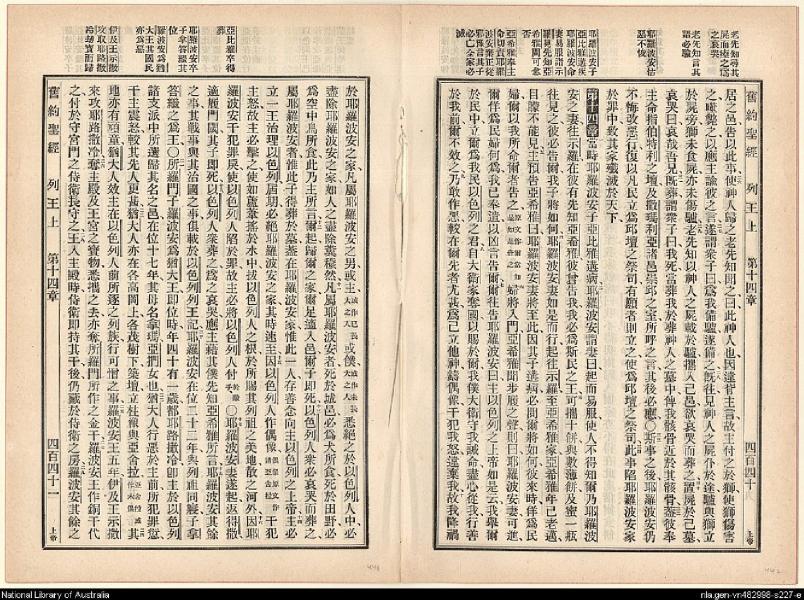 老先知尋其
屍而瘞之爲
之哀哭
老先知言其
語必驗
耶羅波安怙
惡不悛
耶羅波安子
舊約聖經 列王上 第十四章 四百四十 上帝
居之邑告以此事使神人歸之老先知聞之曰此神人也因違背主言故主付之於獅使獅傷害
之噬斃之以應主諭彼之言遂謂衆子曰爲我備驢遂備之既往見神人之屍仆於途驢與獅立
於屍旁獅未食屍亦未傷驢老先知以神人之屍載於驢攜入己邑欲哀哭而葬之置屍於己墓
哀哭曰哀哉吾兄既葬謂衆子曰我死當葬我於葬神人之墓中俾我骸骨近於其骸骨蓋彼奉
主命指伯特利之壇及撒瑪利亞諸邑崇邱之室所呼之言其後必應〇斯事之後耶羅波安仍
不悔改惡行復以凡民立爲邱壇之祭司有願者則立之使爲邱壇之祭司此事陷耶羅波安家
於罪中致其家殲滅於天下
第十四章 當時耶羅波安子亞比雅遘病耶羅波安謂妻曰起而易服使人不得知爾乃耶羅波
安之妻往示羅在彼有先知亞希雅彼曾許我我必爲斯民之王可攜十餅與數薄餅及蜜一瓶
往見之彼必告爾我子將如何耶羅波安妻如是而行起往示羅至亞希雅家亞希雅年已老邁
目朦不能見主預告亞希雅曰耶羅波安妻將至此因其子遘病必問爾將如何彼來時佯爲民
婦爾可以我所命爾者告之婦將入門亞希雅聞步履之聲則曰耶羅波安妻可進
爾佯爲民婦何爲我已奉遣以凶言告爾爾往告耶羅波安曰主以色列之上帝如是云我舉爾
於民中立爾爲我民以色列之君自大衛家奪國以賜於爾我僕大衛守我誡命盡心從我行善
於我前爾不效之乃敢作惡較在爾先者尤甚爲己立他神鑄偶像干犯我怒違棄我故我降禍
亞比雅卒得
葬
耶羅波安卒
子拿答繼其
位
羅波安爲猶
大王其國民
亦爲惡
於耶羅波安之家凡屬耶羅波安之男或主或僕悉絕之於以色列人中必
盡除耶羅波安之家如人之盡除糞穢然凡屬耶羅波安者死於城邑必爲犬所食死於田野必
爲空中鳥所食此乃主所言爾起歸爾之家爾足適入邑爾子即死以色列人衆必哀哭而葬之
屬耶羅波安者惟此子得葬於墓蓋在耶羅波安家惟此一人存善念向主以色列之上帝主必
立一王治理以色列屆期必絕耶羅波安之家其時速主因以色列人作偶像干犯
主怒故主必擊之使如蘆葦搖於水中拔以色列人之根於所賜其列祖之美地散之河外因耶
羅波安干犯罪戾使以色列人陷於罪故主必將以色列人付〇耶羅波安妻遂起返得撒
適履門閾其子即死以色列人衆葬之爲之哀哭應主藉其僕先知亞希雅所言耶羅波安其餘
之事其戰事與其治國之事俱載於以色列列王記耶羅波安在位二十二年與列祖同寢子拿
答繼之爲王〇所羅門子羅波安爲猶大王即位時年四十有一歲都耶路撒冷即主於以色列
諸支派中所選歸其名之邑在位十七年其母名拿瑪亞捫女也猶大人行惡於主前所犯罪愆
干主震怒較其先人更甚猶大人亦在各高岡上各茂樹下築壇立柱像與亞舍拉其
地亦有頑童猶大人效主在以色列人前所逐之列族行可憎之事羅波安王五年伊及王示撒
來攻耶路撒冷奪主殿及王宮之寶物悉攜之去亦奪所羅門所作之金干羅波安王作銅干代
之付於守宮門之侍衛長守之王入主殿時侍衛即持其干後仍藏於侍衛之房羅波安其餘之
舊約聖經 列王上 第十四章 四百四十一 上帝
National Library of Australia
nla.gen-vn482998-s227-e